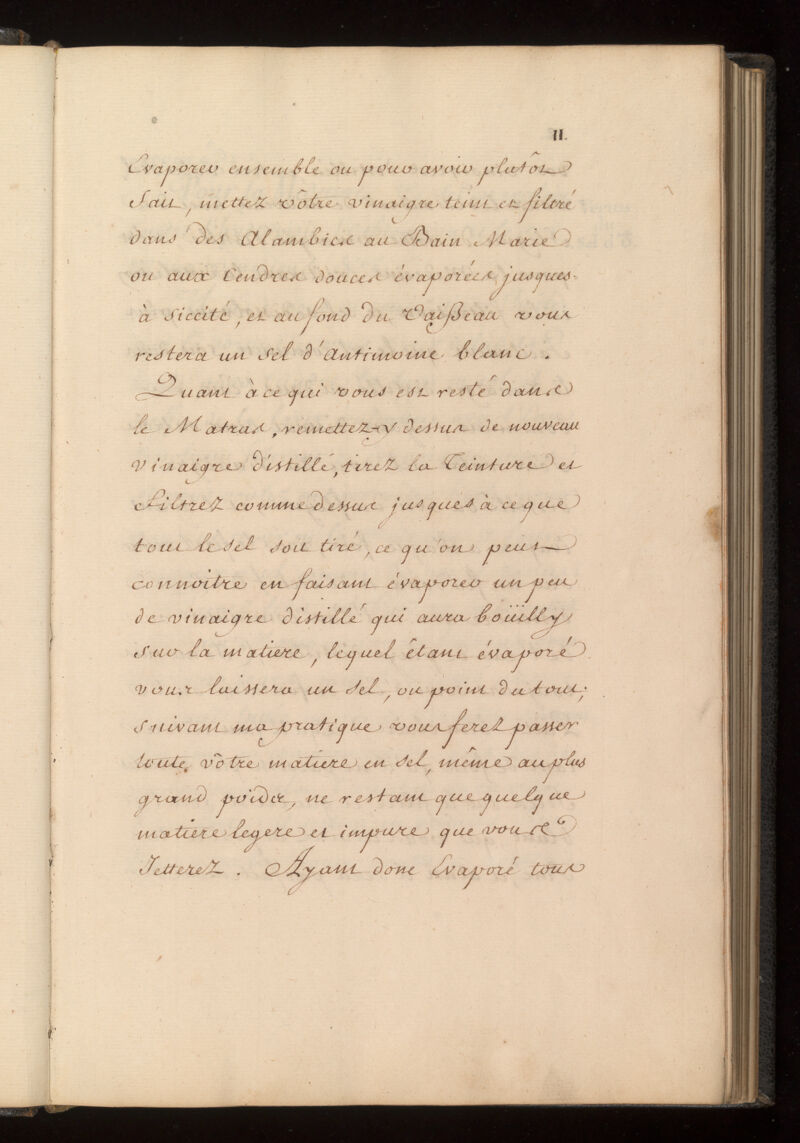 11.
Evaporer ensemble ou pour avoir plutôt
fait, mettez vôtre vinaigre teint et filtré
dans des Alambics au Bain Marie
ou aux Cendres douces évaporées jusques
à siccité, et au fond du Vaißeau vous
restera un Sel d'Antimoine blanc.
Quant à ce qui vous est resté dans
le Matras, remettez-y dessus de nouveau
vinaigre distillé, tirez la Teinture et
Filtrez comme dessus jusques à ce que
tout le Sel soit tiré, ce qu'on peut
connoitre en faisant évaporer un peu
de vinaigre distillé qui aura boüilly
sur la matiere, lequel êtant évaporé
vous laissera un Sel, ou point du tout;
suivant ma pratique vous ferez passer
toute vôtre matiere en Sel, même au plus
grand poids, ne restant que quelque
matiere legere et impure que vous
Jetterez. Ayant donc Evaporé tous